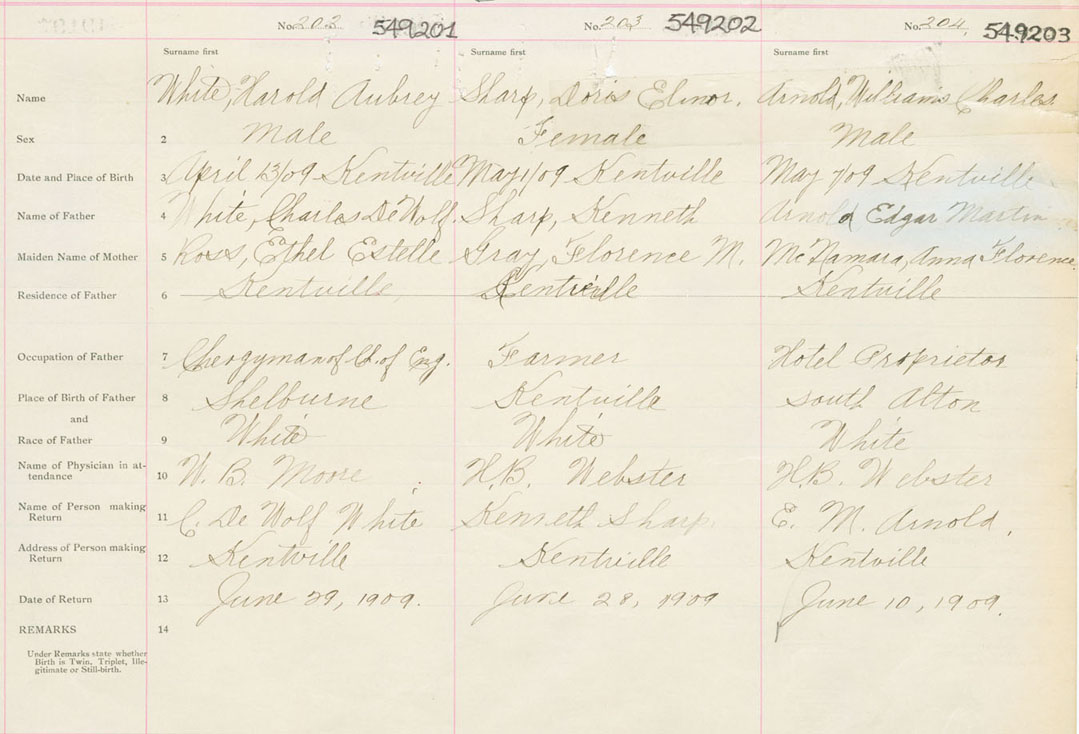 No. 202 549201 No. 203 549202 No. 204, 549203
Surname first Surname first Surname first
Name White, Harold Aubrey Sharp, Doris Elinor. Arnold, Williams Charles
Sex 2 Male Female Male
Date and Place of Birth 3 April 13/09 Kentville May 1/09 Kentville May 7/09 Kentville
Name of Father 4 White, Charles De Wolf. Sharp, Kenneth Arnold Edgar Martin
Maiden Name of Mother 5 Ross, Ethel Estelle Gray, Florence M. McNamara, Anna Florence
Residence of Father 6 Kentville Kentville Kentville
Occupation of Father 7 Clergyman of Ch. of Eng. Farmer Hotel Proprietor
Place of Birth of Father 8 Shelburne Kentville South Alton
and
Race of Father 9 White White White
Name of Physician in at-
tendance 10 W. B. Moore H.B. Webster H.B. Webster
Name of Person making
Return 11 C. De Wolf White Kenneth Sharp. E. M. Arnold.
Address of Person making
Return 12 Kentville Kentville Kentville
Date of Return 13 June 29, 1909. June 28, 1909 June 10, 1909.
REMARKS 14
Under Remarks state whether
Birth is Twin, Triplet, Ille-
gitimate or Still-birth.